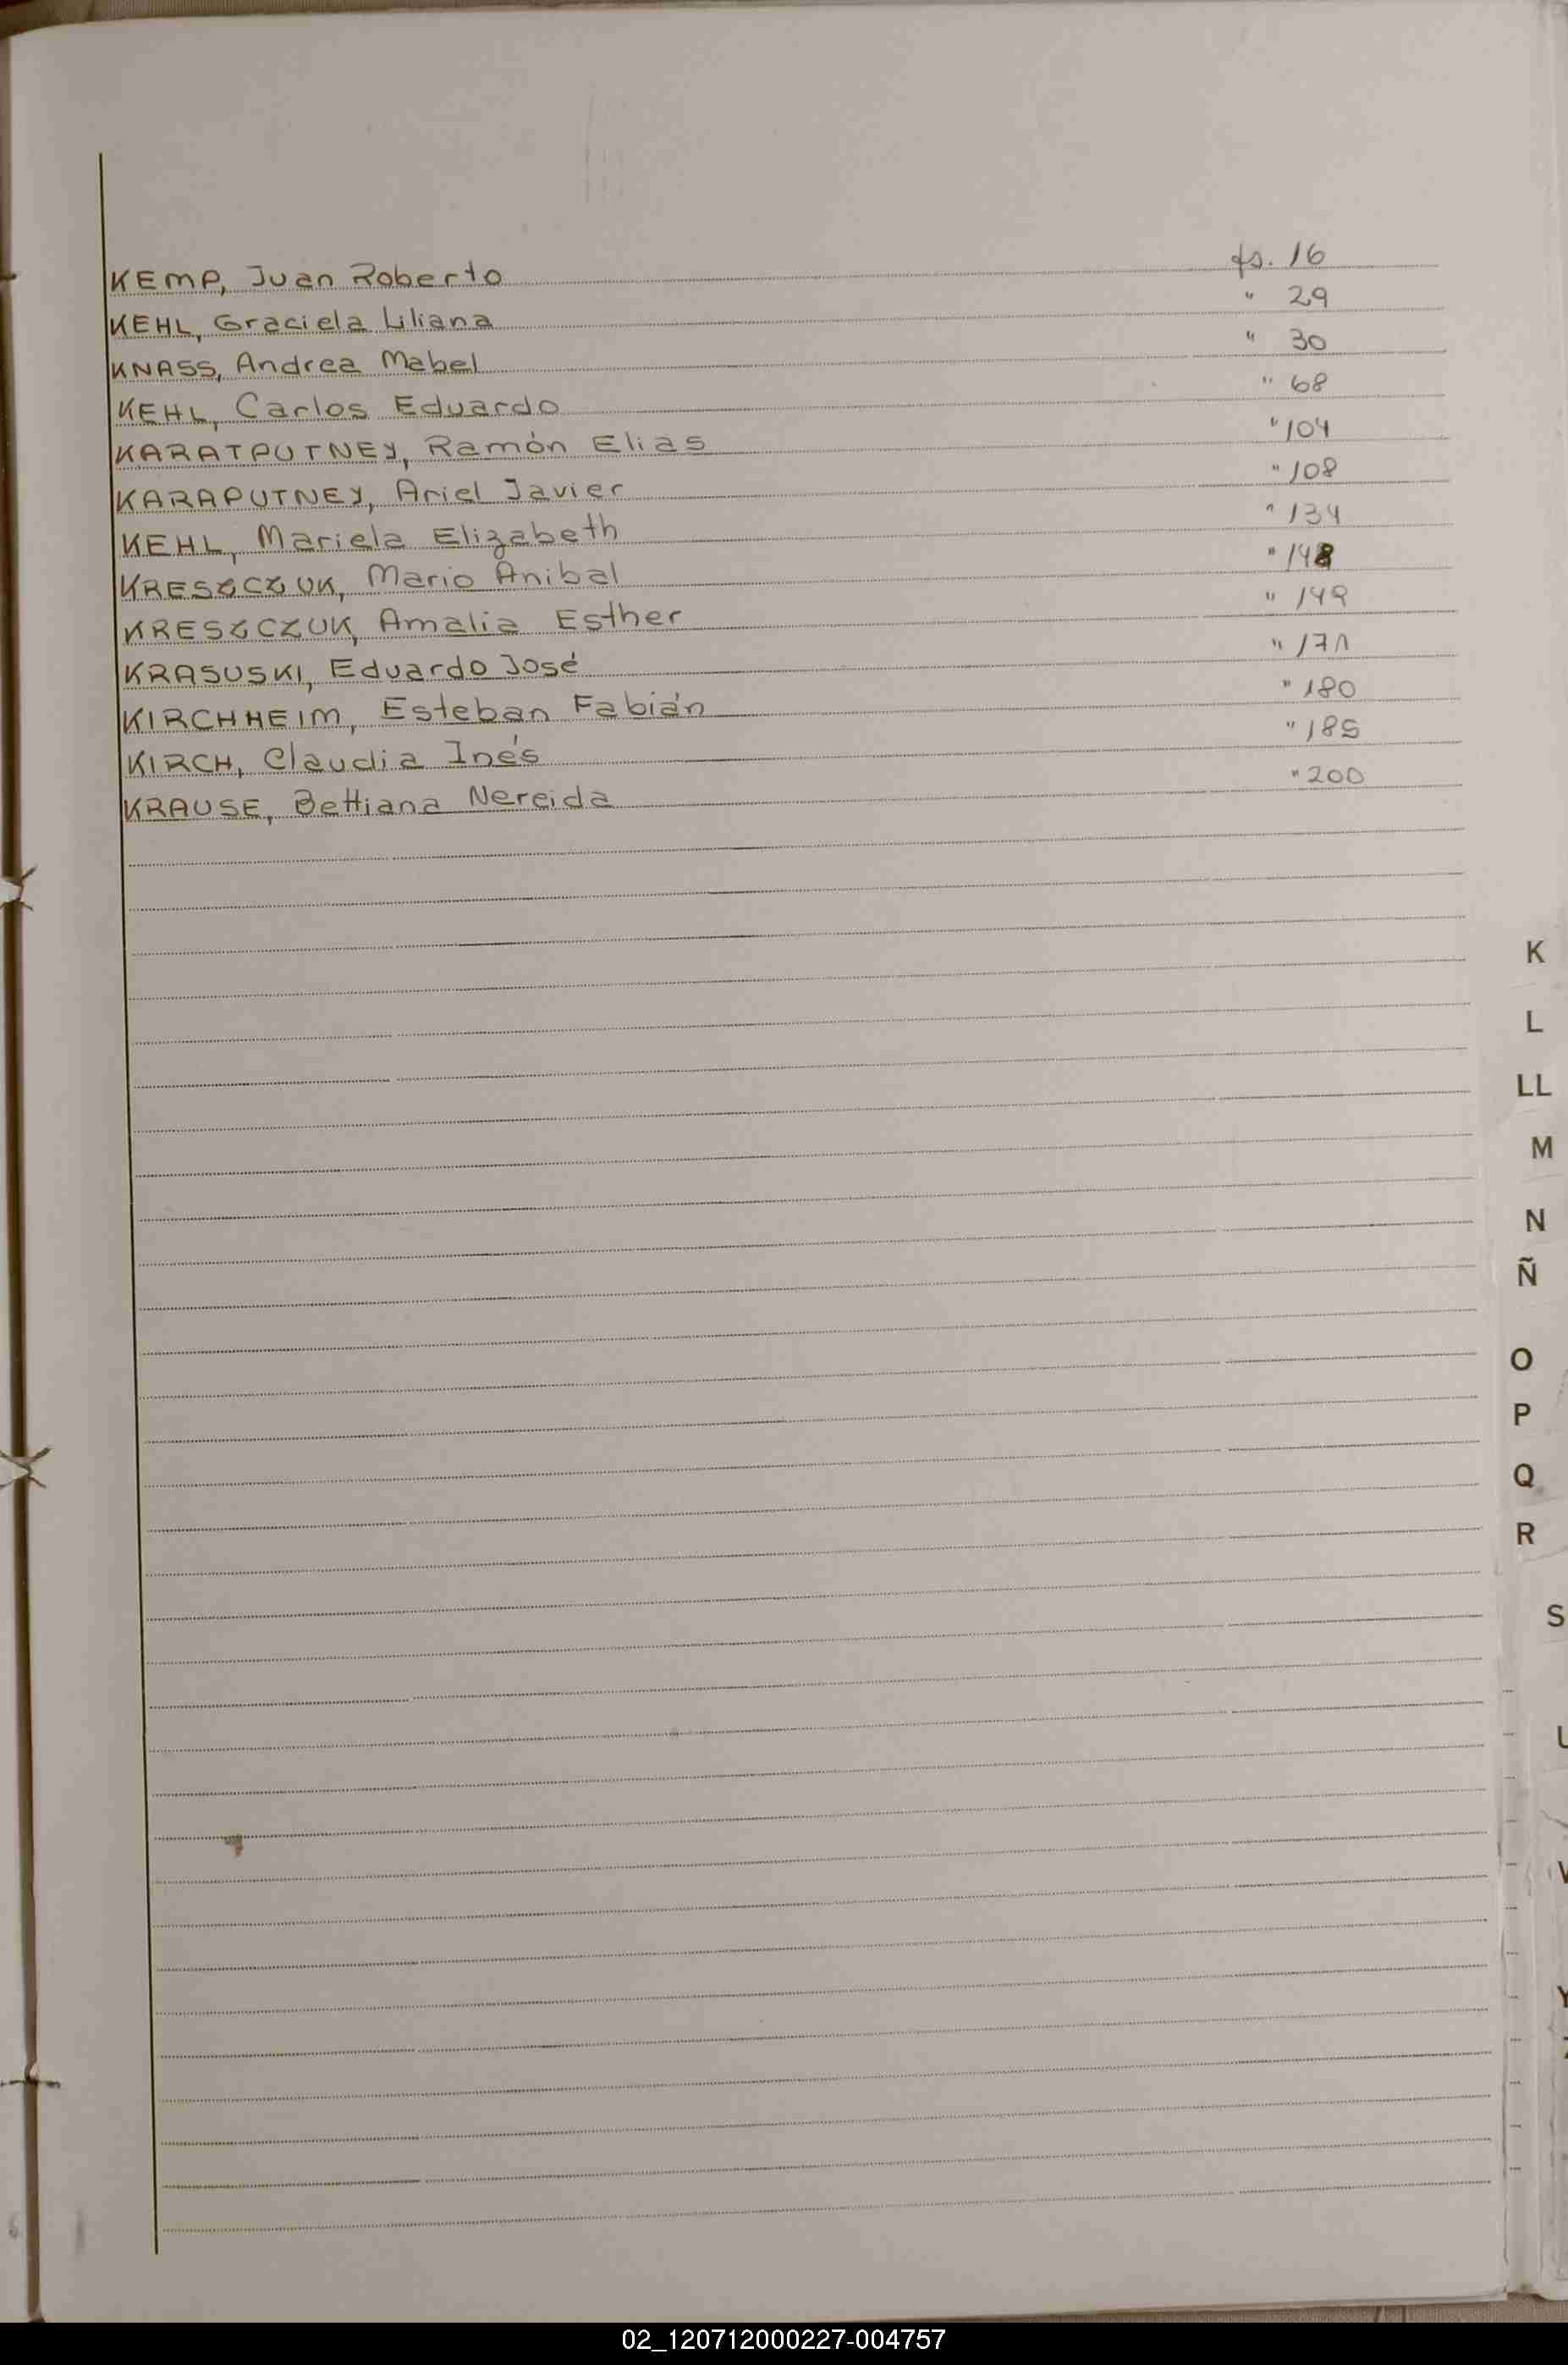 KEMP, Juan Roberto fs. 16
KEHL, Graciela Liliana " 29
KNASS, Andrea Mabel " 30
KEHL, Carlos Eduardo " 68
KARATPUTNEY, Ramón Elias " 104
KARAPUTNEY, Ariel Javier " 108
KEHL, Mariela Elizabeth " 134
KRESZCZUK, Mario Anibal " 148
KRESZCZUK, Amalia Esther " 149
KRASUSKI, Eduardo José " 171
KIRCHHEIM, Esteban Fabián " 180
KIRCH, Claudia Inés " 185
KRAUSE, Bettiana Nereida " 200
K
L
LL
M
N
Ñ
O
P
Q
R
S
02_120712000227-004757